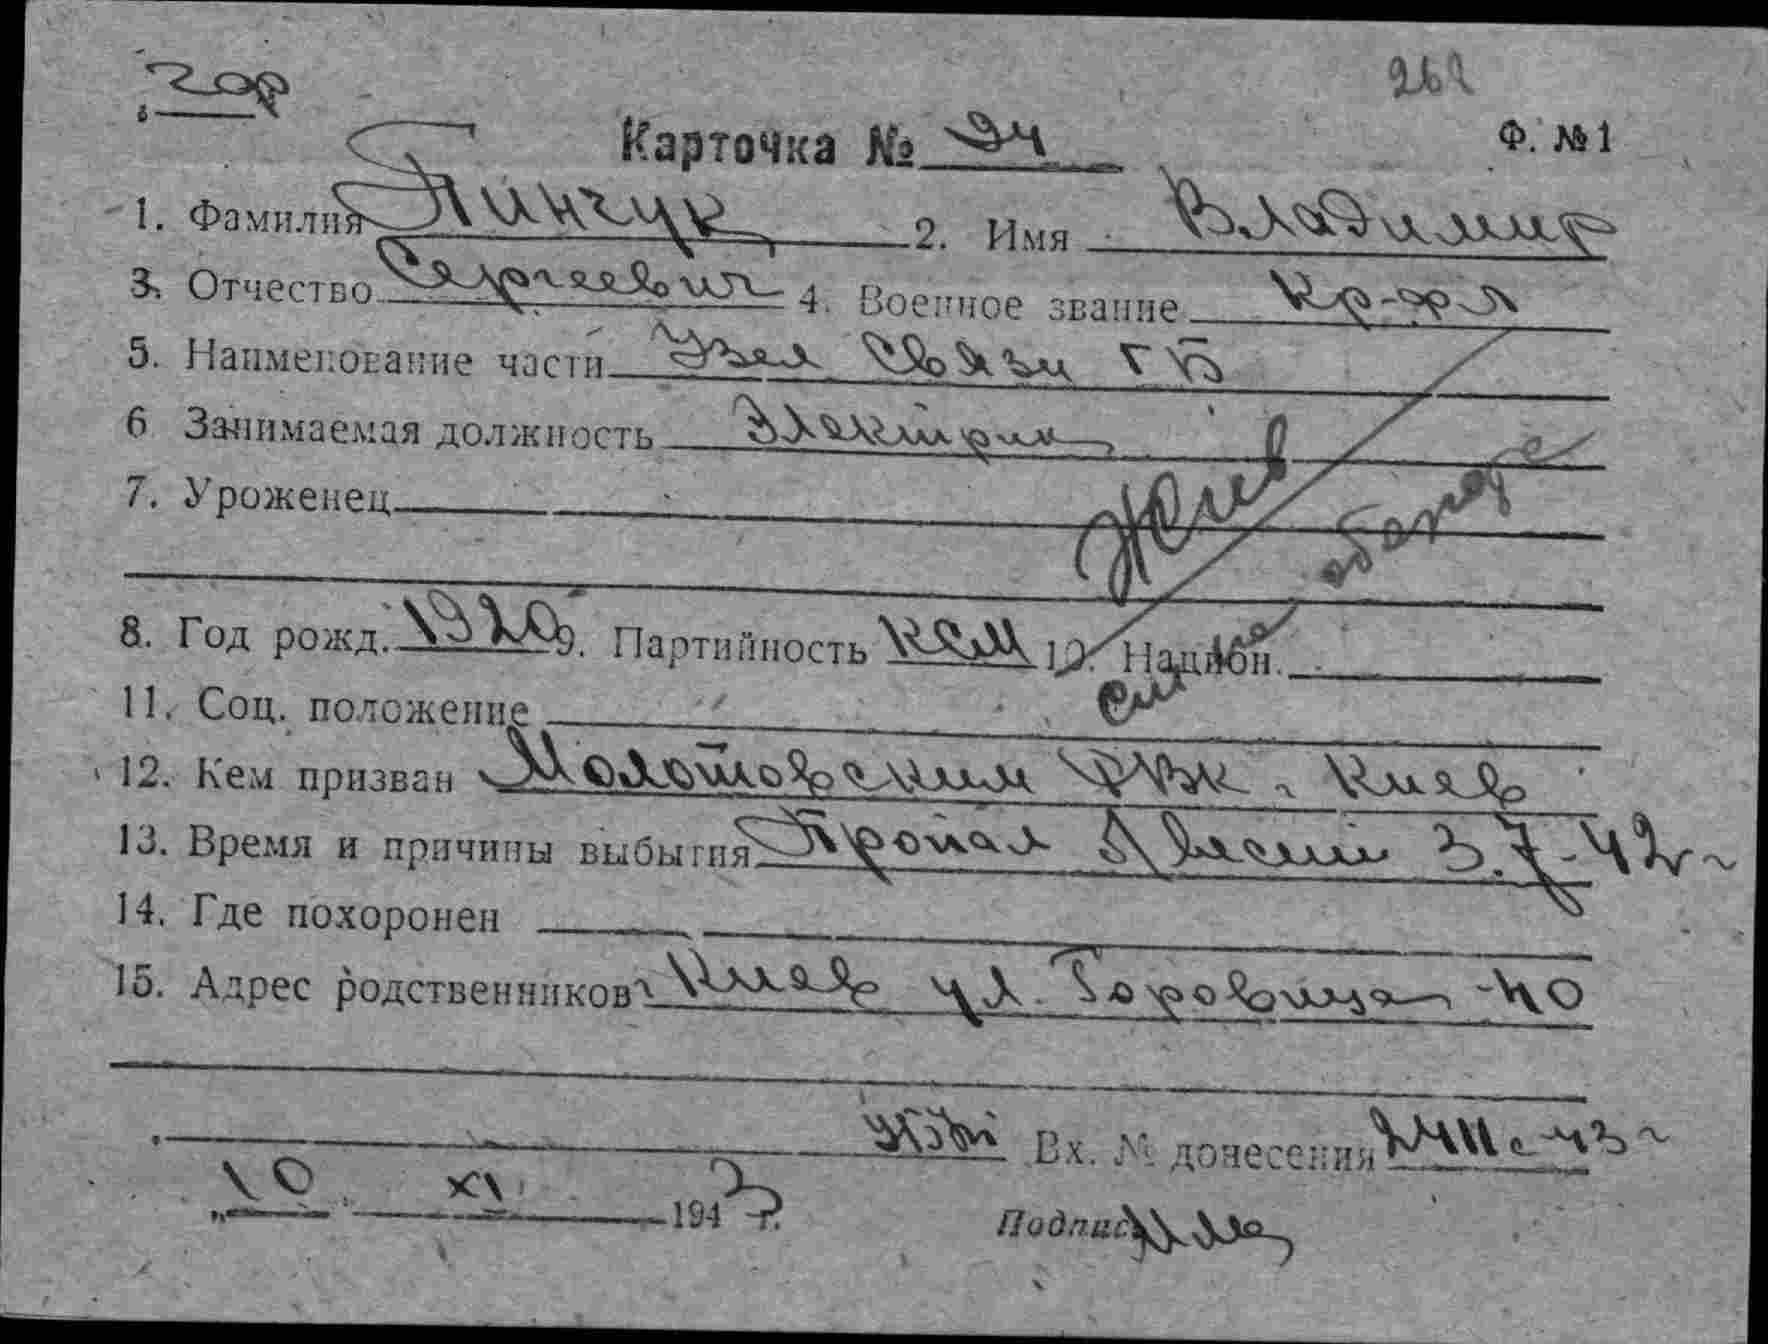 262
Карточка № 94 Ф. №1
1. Фамилия Пинчук 2. Имя Владимир
3. Отчество Сергеевич 4. Военное звание Кр-фл
5. Наименование части Узел Связи ГБ
6 Занимаемая должность Электрик
7. Уроженец
Жив
8. Год рожд. 1920 9. Партийность КСМ 10. Национ.
11. Соц. положение
12. Кем призван Молотовским РВК г. Киев
13. Время и причины выбытия Пропал б/вести 3.7-42 г
14. Где похоронен
15. Адрес родственников г Киев ул. Горовица 40
Вх. № донесения 43 г
10 XI 1943 г.
Подпись